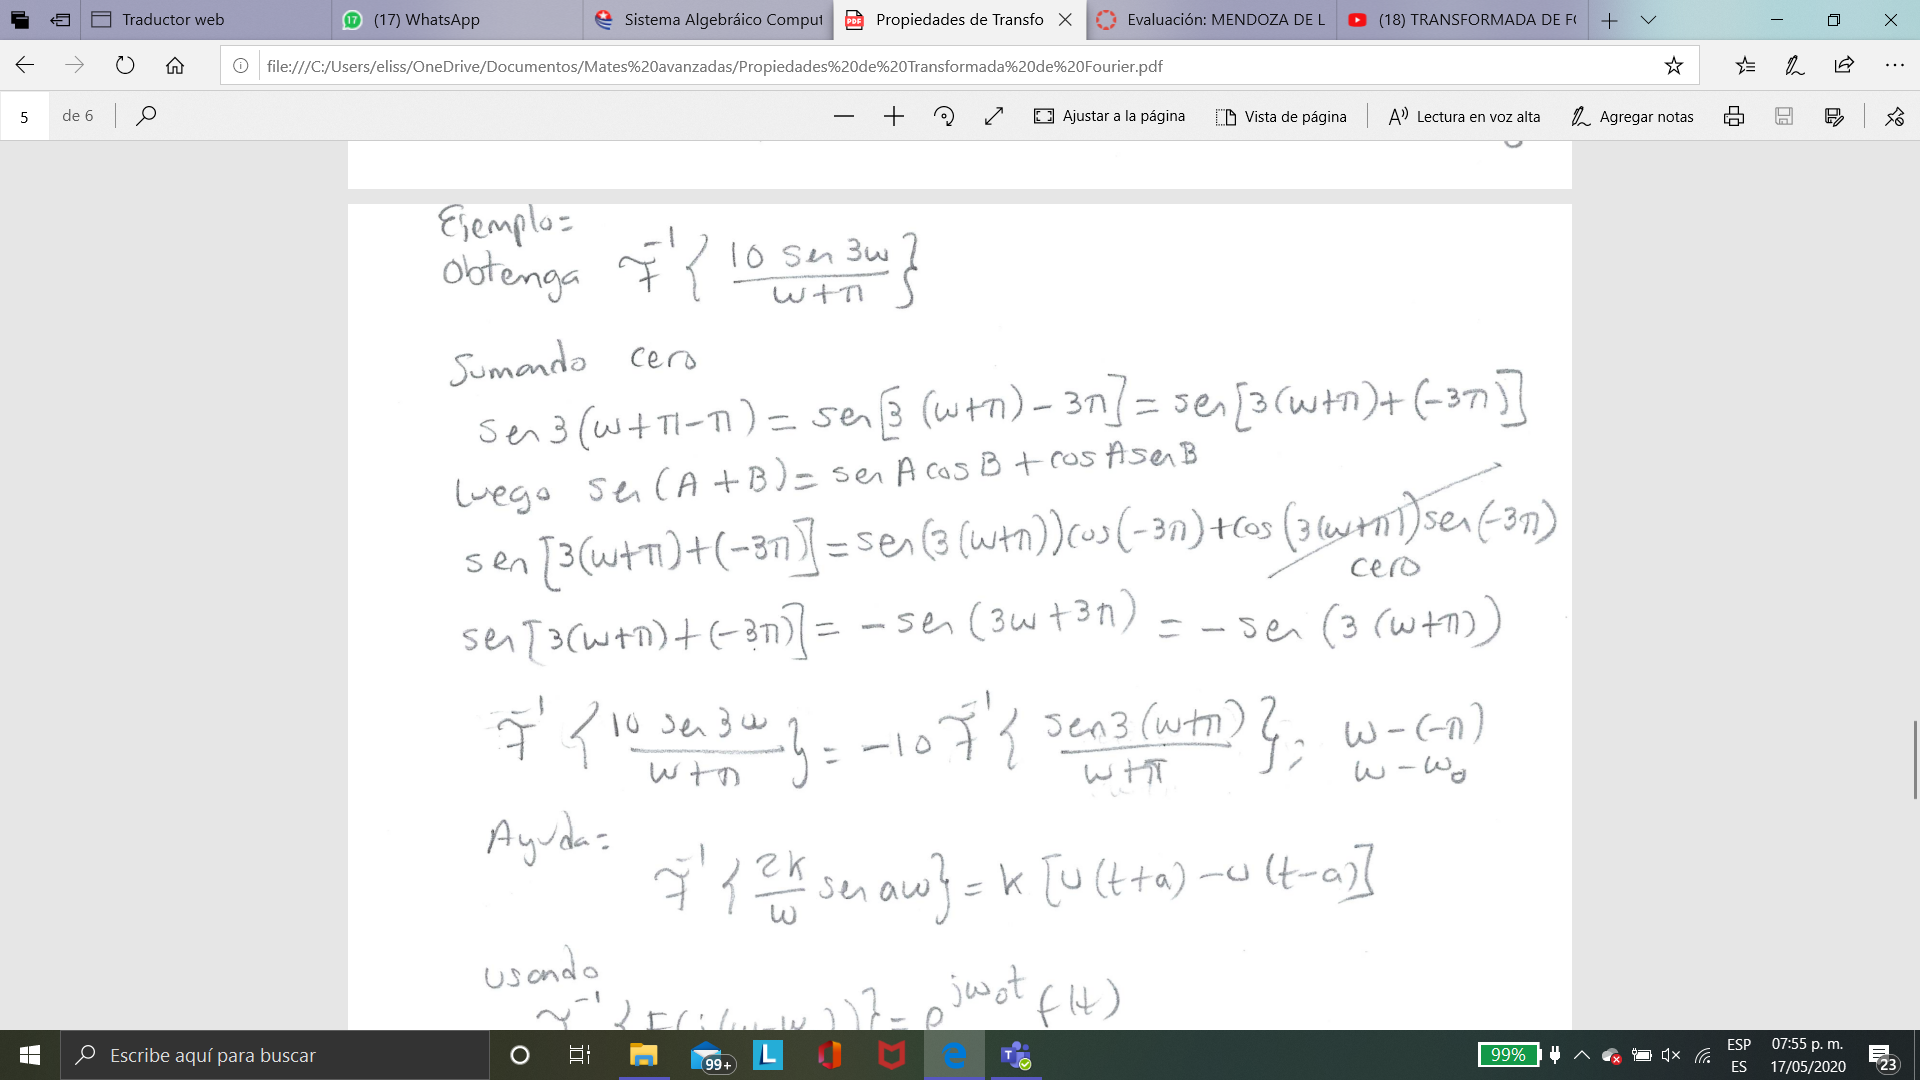 Traductor web
(17) WhatsApp
Sistema Algebráico Comput
Propiedades de Transfo
Evaluación: MENDOZA DE L
(18) TRANSFORMADA DE FO
file:///C:/Users/eliss/OneDrive/Documentos/Mates%20avanzadas/Propiedades%20de%20Transformada%20de%20Fourier.pdf
5 de 6
Ajustar a la página
Vista de página
Lectura en voz alta
Agregar notas
Ejemplo=
Obtenga F⁻¹ { 10 sen 3w / w+π }
Sumando cero
sen 3(w+π-π) = sen[3 (w+π) - 3π] = sen[3(w+π)+(-3π)]
Luego sen(A+B) = sen A cos B + cos A sen B
sen[3(w+π)+(-3π)] = sen(3(w+π))cos(-3π)+cos(3(w+π))sen(-3π)
cero
sen[3(w+π)+(-3π)] = - sen (3w+3π) = - sen (3 (w+π))
F⁻¹ { 10 sen 3w / w+π } = -10 F⁻¹ { sen3(w+π) / w+π } ; w-(-π)
w-w₀
Ayuda=
F⁻¹ { 2k/w sen aw } = k [u(t+a) - u(t-a)]
usando
F⁻¹ {F(j(w-w₀))} = e^{jw₀t} f(t)
Escribe aquí para buscar
99+
99%
ESP
ES
07:55 p. m.
17/05/2020
23